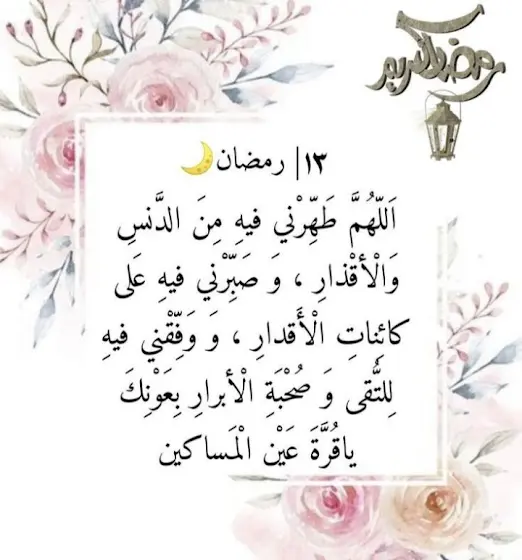 رمضان كريم
١٣| رمضان🌙
اَللّهُمَّ طَهِّرْني فيهِ مِنَ الدَّنسِ
وَالْأقْذارِ ، وَ صَبِّرْني فيهِ عَلى
كائِناتِ الْأَقدارِ ، وَ وَفِّقْني فيهِ
لِلتُّقى وَ صُحْبَةِ الْأبرارِ بِعَوْنِكَ
ياقُرَّةَ عَيْنِ الْمَساكين